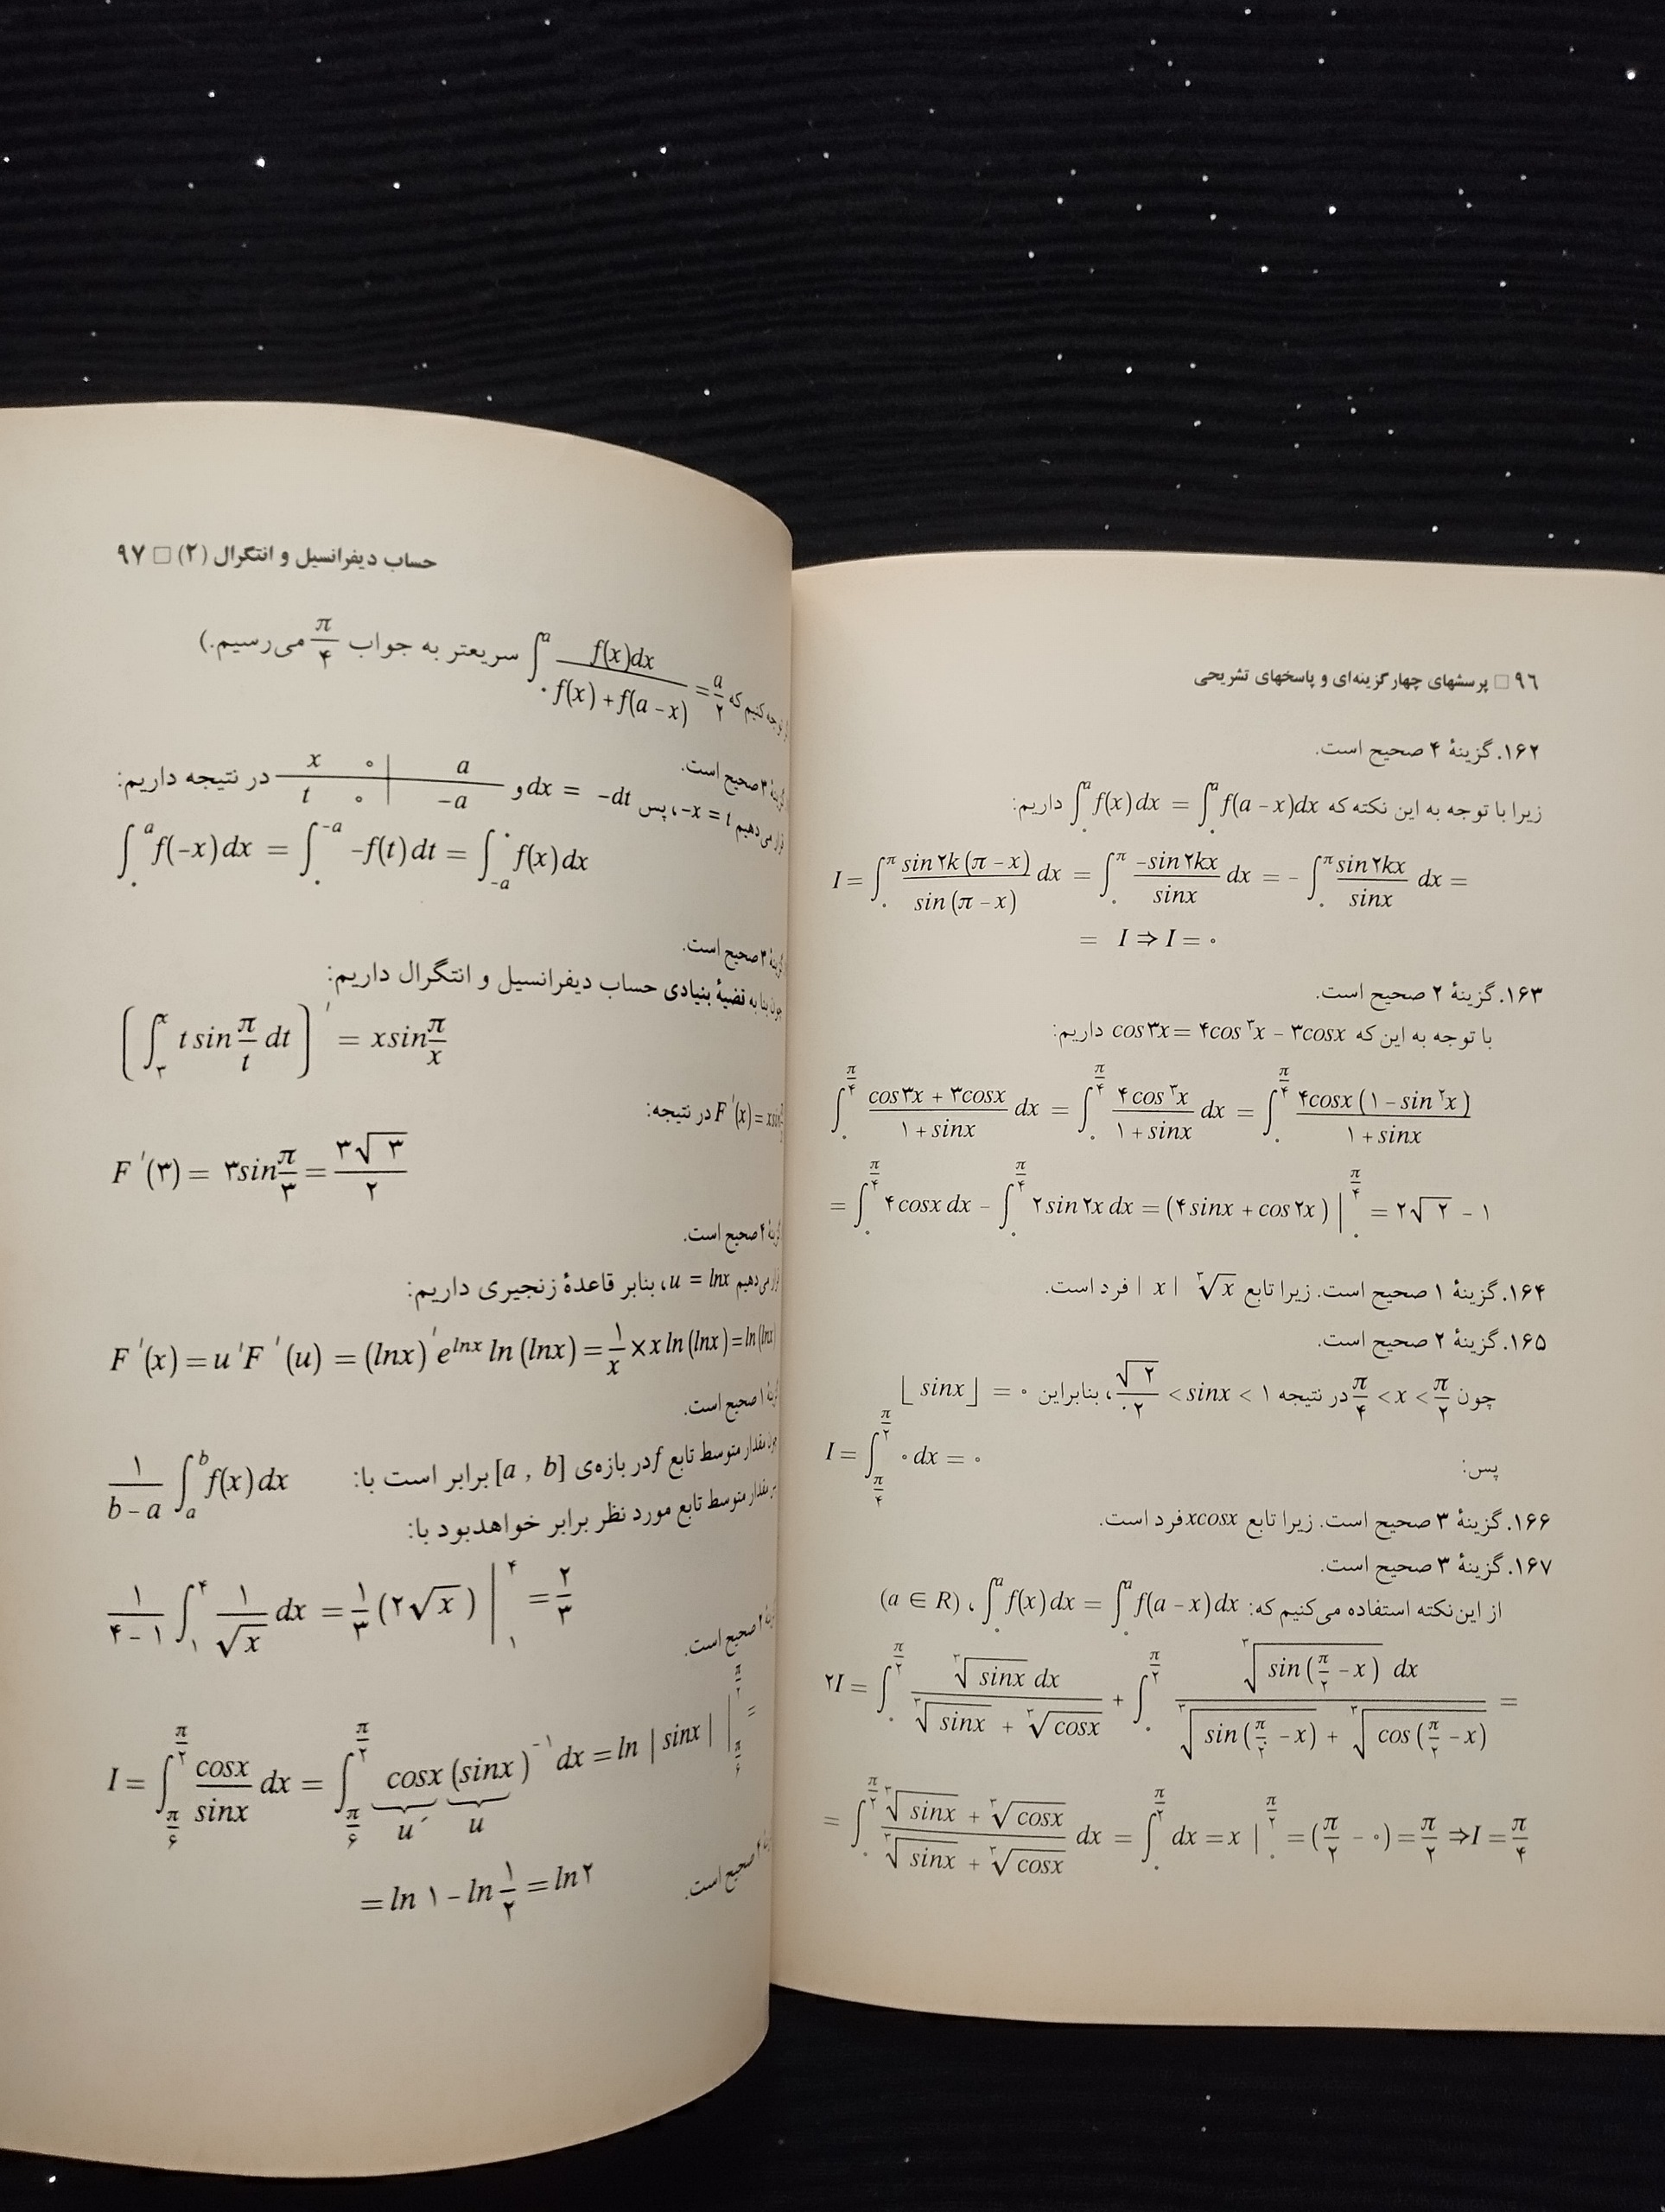 ۹۶ □ پرسشهای چهارگزینه‌ای و پاسخهای تشریحی
۱۶۲. گزینهٔ ۴ صحیح است.
زیرا با توجه به این نکته که ∫₀^a f(x)dx = ∫₀^a f(a-x)dx داریم:
I = ∫₀^π sin۲k(π-x)/sin(π-x) dx = ∫₀^π -sin۲kx/sinx dx = - ∫₀^π sin۲kx/sinx dx =
= I ⇒ I = ۰
۱۶۳. گزینهٔ ۲ صحیح است.
با توجه به این که cos۳x = ۴cos^۳x - ۳cosx داریم:
∫₀^(π/۴) (cos۳x + ۳cosx)/(۱+sinx) dx = ∫₀^(π/۴) ۴cos^۳x/(۱+sinx) dx = ∫₀^(π/۴) ۴cosx(۱-sin^۲x)/(۱+sinx)
= ∫₀^(π/۴) ۴cosx dx - ∫₀^(π/۴) ۲sin۲x dx = (۴sinx + cos۲x)|₀^(π/۴) = ۲√۲ - ۱
۱۶۴. گزینهٔ ۱ صحیح است. زیرا تابع |x| ∛x فرد است.
۱۶۵. گزینهٔ ۲ صحیح است.
چون π/۴ < x < π/۲ در نتیجه √۲/۲ < sinx < ۱، بنابراین ⌊sinx⌋ = ۰
پس: I = ∫_(π/۴)^(π/۲) ۰dx = ۰
۱۶۶. گزینهٔ ۳ صحیح است. زیرا تابع xcosx فرد است.
۱۶۷. گزینهٔ ۳ صحیح است.
از این‌نکته استفاده می‌کنیم که: ∫₀^a f(x)dx = ∫₀^a f(a-x)dx، (a ∈ R)
۲I = ∫₀^(π/۲) ∛sinx dx/(∛sinx + ∛cosx) + ∫₀^(π/۲) ∛sin(π/۲-x) dx/(∛sin(π/۲-x) + ∛cos(π/۲-x)) =
= ∫₀^(π/۲) (∛sinx + ∛cosx)/(∛sinx + ∛cosx) dx = ∫₀^(π/۲) dx = x|₀^(π/۲) = (π/۲ - ۰) = π/۲ ⇒ I = π/۴
حساب دیفرانسیل و انتگرال (۲) □ ۹۷
کنیم که ∫₀^a f(x)dx/(f(x)+f(a-x)) = a/۲ سریعتر به جواب π/۴ می‌رسیم.)
۳ صحیح است.
می‌دهیم -x = t، پس dx = -dt و x ۰ | a در نتیجه داریم:
t ۰ | -a
∫₀^a f(-x)dx = ∫₀^(-a) -f(t)dt = ∫_(-a)^۰ f(x)dx
۳ صحیح است.
بنا به قضیهٔ بنیادی حساب دیفرانسیل و انتگرال داریم:
(∫_۳^x t sin π/t dt)′ = x sin π/x
F′(x) = در نتیجه:
F′(۳) = ۳sin π/۳ = ۳√۳/۲
صحیح است.
می‌دهیم u = lnx، بنابر قاعدهٔ زنجیری داریم:
F′(x) = u′F′(u) = (lnx)′ e^(lnx) ln(lnx) = ۱/x × x ln(lnx) = ln(lnx)
۱ صحیح است.
مقدار متوسط تابع f در بازه‌ی [a , b] برابر است با: ۱/(b-a) ∫_a^b f(x)dx
مقدار متوسط تابع مورد نظر برابر خواهدبود با:
۱/(۴-۱) ∫_۱^۴ ۱/√x dx = ۱/۳ (۲√x)|_۱^۴ = ۲/۳
۲ صحیح است.
I = ∫_(π/۶)^(π/۲) cosx/sinx dx = ∫_(π/۶)^(π/۲) cosx (sinx)^(-۱) dx = ln|sinx| |_(π/۶)^(π/۲) =
u′ u
= ln۱ - ln ۱/۲ = ln۲
صحیح است.